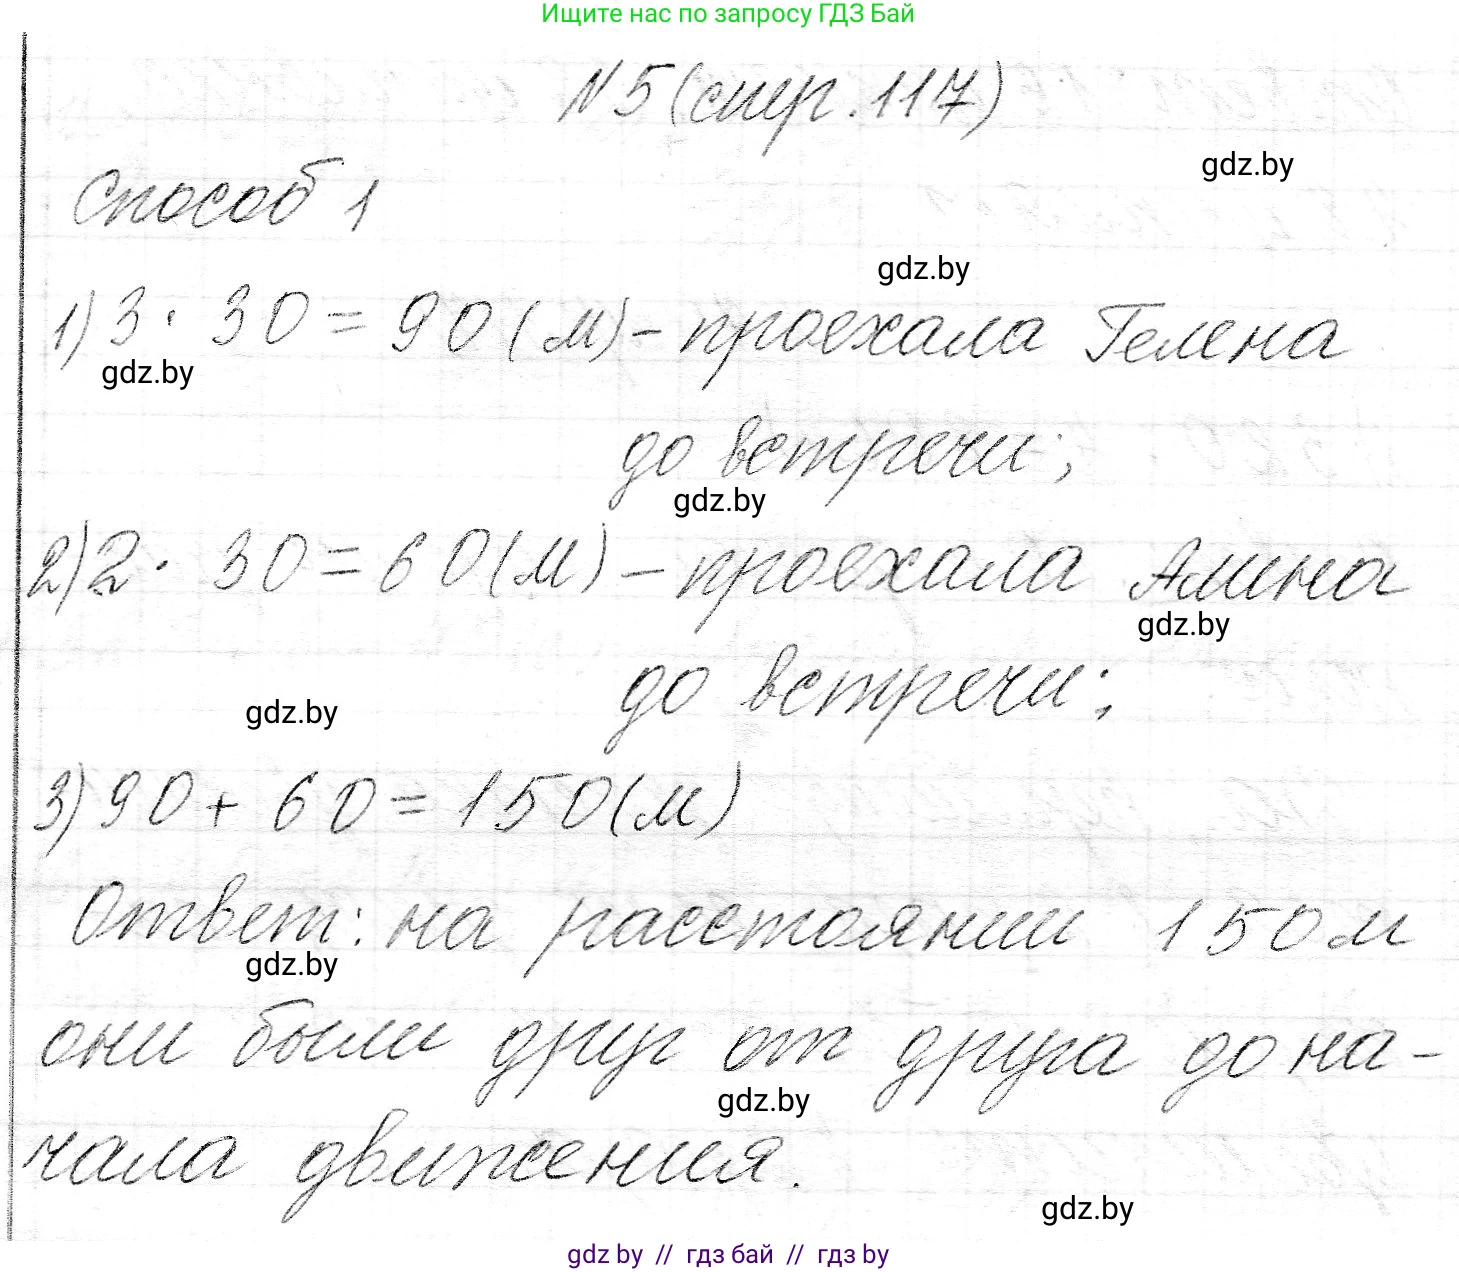 Ищите нас по запросу ГДЗ Бай
N 5 (стр. 117)
gdz.by
Способ 1
gdz.by
1) 3 · 30 = 90 (м) – проехала Гелена
gdz.by
до встречи;
gdz.by
2) 2 · 30 = 60 (м) – проехала Амина
gdz.by
до встречи;
gdz.by
3) 90 + 60 = 150 (м)
Ответ: на расстоянии 150 м
gdz.by
они были друг от друга до на-
gdz.by
чала движения.
gdz.by
gdz by // гдз бай // гдз by